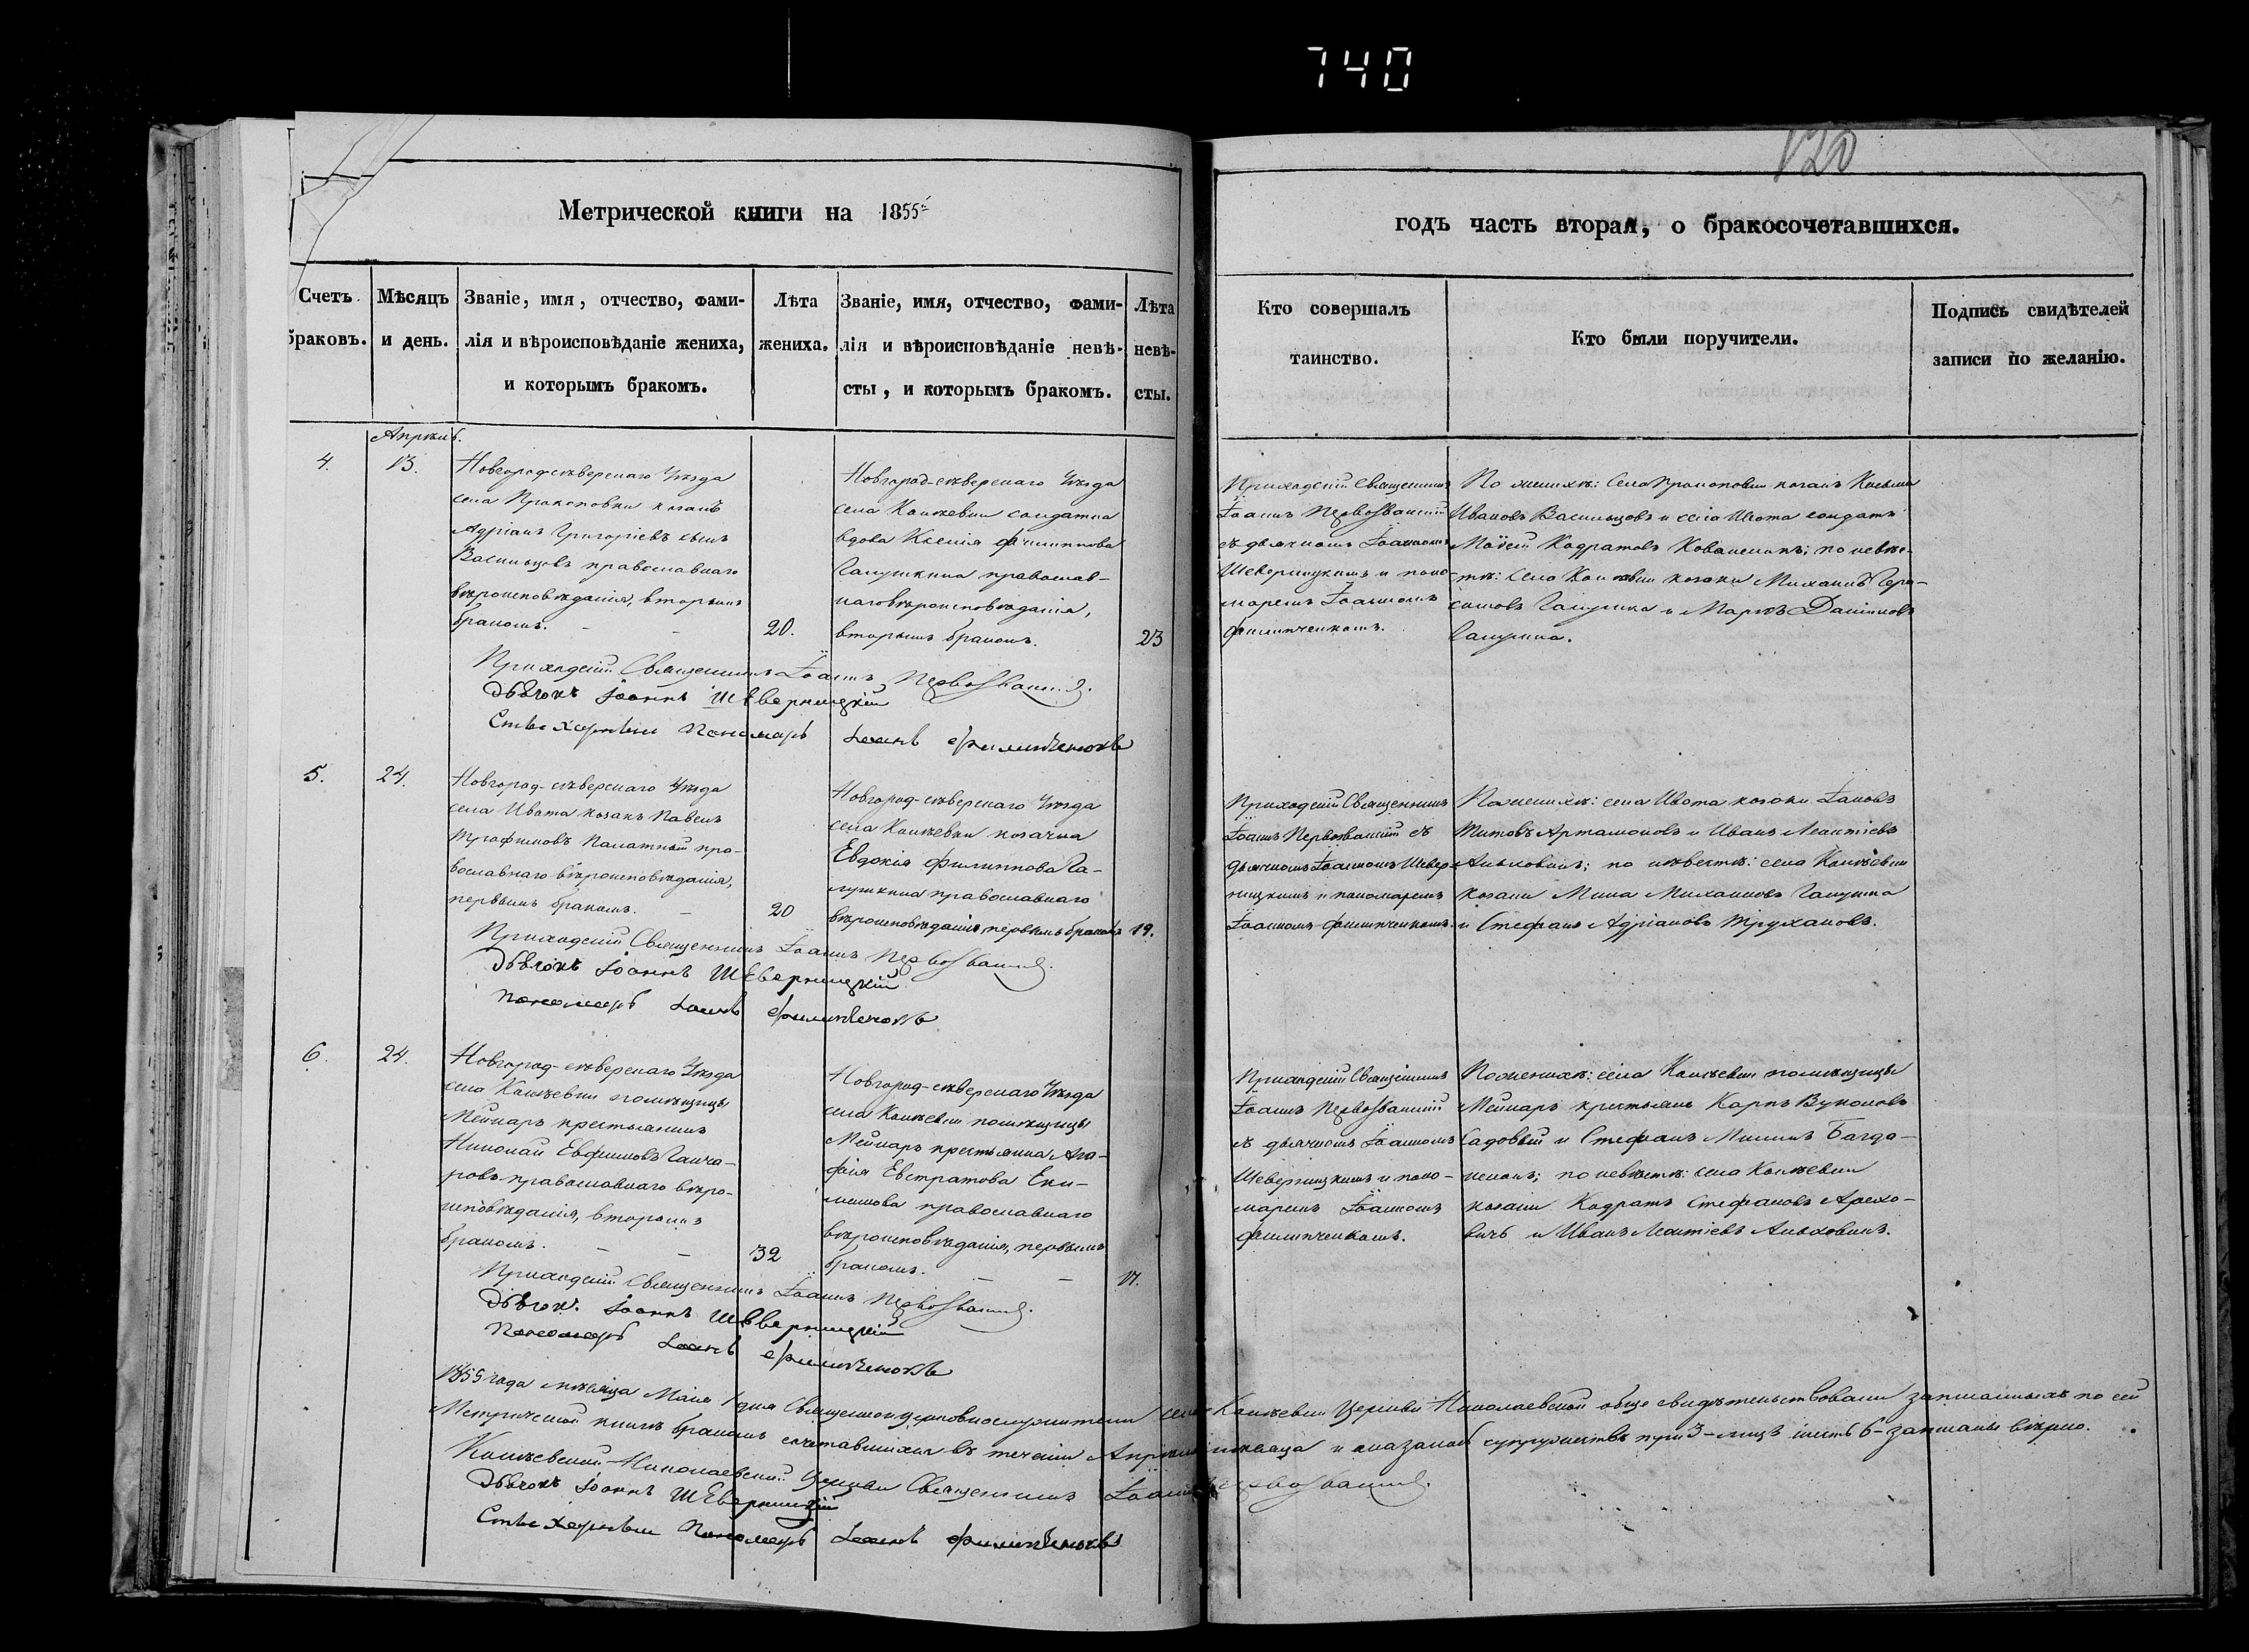 740
120
Метрической книги на 1855й
годъ часть вторая, о бракосочетавшихся.
Счетъ браковъ.
Мѣсяцъ и день.
Званіе, имя, отчество, фами-
лія и вѣроисповѣданіе жениха,
и которымъ бракомъ.
Лѣта
жениха.
Званіе, имя, отчество, фами-
лія и вѣроисповѣданіе невѣ-
сты, и которымъ бракомъ.
Лѣта
невѣ-
сты.
Кто совершалъ
таинство.
Кто были поручители.
Подпись свидѣтелей
записи по желанію.
4.
Апрѣль.
13.
Новгородсѣверскаго Уѣзда
села Прокоповки козакъ
Адріанъ Григоріевъ сынъ
Васильцовъ православнаго
вѣроисповѣданія, вторымъ
бракомъ.
20.
Новгород-сѣверскаго Уѣзда
села солдатка
вдова Ксенія Филиппова
Галушкина православ-
наго вѣроисповѣданія,
вторымъ бракомъ.
23
Приходскій Священникъ
Іоаннъ Первозванскій
съ дьячкомъ Іоанномъ
Шеверницкимъ и поно-
маремъ Іоанномъ
Филипченкомъ.
По женихѣ: села Прокоповки козакъ Косьма
Ивановъ Васильцовъ и села Ивота солдатъ
Моѵсей Кодратовъ Коваленокъ; по невѣс-
тѣ: села козаки Михаилъ Гера-
симовъ Галушка и Маркъ Даніиловъ
Галушка.
Приходскій Священникъ Іоаннъ Первозванскій.
Дьячокъ Іоаннъ Шеверницкій
Пономарь Іоаннъ Филипченокъ
5.
24.
Новгород-сѣверскаго Уѣзда
села Ивота козакъ Павелъ
Трофимовъ Палатный пра-
вославнаго вѣроисповѣданія,
первымъ бракомъ.
20
Новгород-сѣверскаго Уѣзда
села козачка
Евдокія Филиппова Га-
лушкина православнаго
вѣроисповѣданія, первымъ бракомъ
19.
Приходскій Священникъ
Іоаннъ Первозванскій съ
дьячкомъ Іоанномъ Шевер-
ницкимъ и пономаремъ
Іоанномъ Филипченкомъ.
По женихѣ: села Ивота козаки Іаковъ
Титовъ Артамоновъ и Иванъ Леонтіевъ
по невѣстѣ: села
козаки Мина Михаиловъ Галушка
и Стефанъ Адріановъ Трухановъ.
Приходскій Священникъ Іоаннъ Первозванскій.
Дьячокъ Іоаннъ Шеверницкій
Пономарь Іоаннъ Филипченокъ
6.
24.
Новгород-сѣверскаго Уѣзда
села помѣщицы
Мейнаръ крестьянинъ
Николай Евфимовъ Ганча-
ровъ православнаго вѣро-
исповѣданія, вторымъ
бракомъ.
32
Новгород-сѣверскаго Уѣзда
села помѣщицы
Мейнаръ крестьянка Ага-
фія Евстратова Еки-
мова православнаго
вѣроисповѣданія, первымъ
бракомъ.
17.
Приходскій Священникъ
Іоаннъ Первозванскій
съ дьячкомъ Іоанномъ
Шеверницкимъ и поно-
маремъ Іоанномъ
Филипченкомъ.
По женихѣ: села помѣщицы
Мейнаръ крестьяне Карпъ Вуколовъ
Садовый и Стефанъ Мининъ Багда-
ненокъ; по невѣстѣ: села
козаки Кодратъ Стефановъ Арехо-
вичъ и Иванъ Леонтіевъ
Приходскій Священникъ Іоаннъ Первозванскій.
Дьячокъ Іоаннъ Шеверницкій
Пономарь Іоаннъ Филипченокъ
1855 года мѣсяца Маія 1 дня Священноцерковнослужители села Церкви Николаевской обще свидѣтельствовали записанныхъ по сей
Метрической книгѣ бракомъ сочетавшихся въ теченіи Апрѣля мѣсяца и оказалось супружествъ три 3-лицъ шесть 6-записаны вѣрно.
Николаевской Церкви Священникъ Іоаннъ Первозванскій.
Дьячокъ Іоаннъ Шеверницкій
Пономарь Іоаннъ Филипченокъ